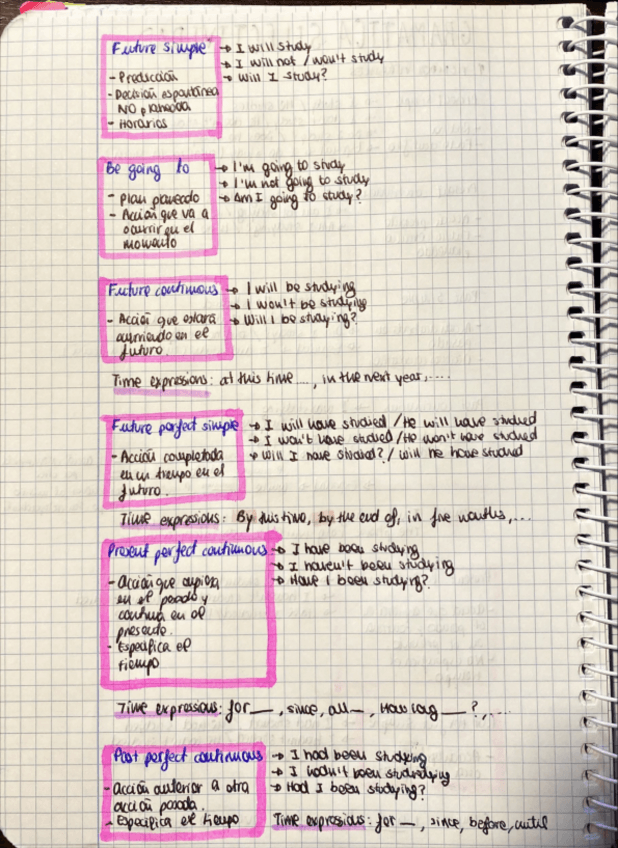 Future simple → I will study
→ I will not / won't study
- Predicción → Will I study?
- Decisión espontánea
NO planeada
- Horarios
Be going to → I'm going to study
→ I'm not going to study
- Plan planeado → Am I going to study?
- Acción que va a
ocurrir en el
momento
Future continuous → I will be studying
→ I won't be studying
- Acción que estará → Will I be studying?
ocurriendo en el
futuro.
Time expressions: at this time ..., in the next year,....
Future perfect simple → I will have studied / He will have studied
→ I won't have studied / He won't have studied
- Acción completada → Will I have studied? / will he have studied
en un tiempo en el
futuro.
Time expressions: By this time, by the end of, in five months,...
Present perfect continuous → I have been studying
→ I haven't been studying
- Acción que empieza → Have I been studying?
en el pasado y
continua en el
presente.
- Especifica el
tiempo
Time expressions: for __, since, all __, How long __ ?,....
Past perfect continuous → I had been studying
→ I hadn't been studying
- acción anterior a otra → Had I been studying?
acción pasada.
- Especifica el tiempo Time expressions: for __, since, before, until